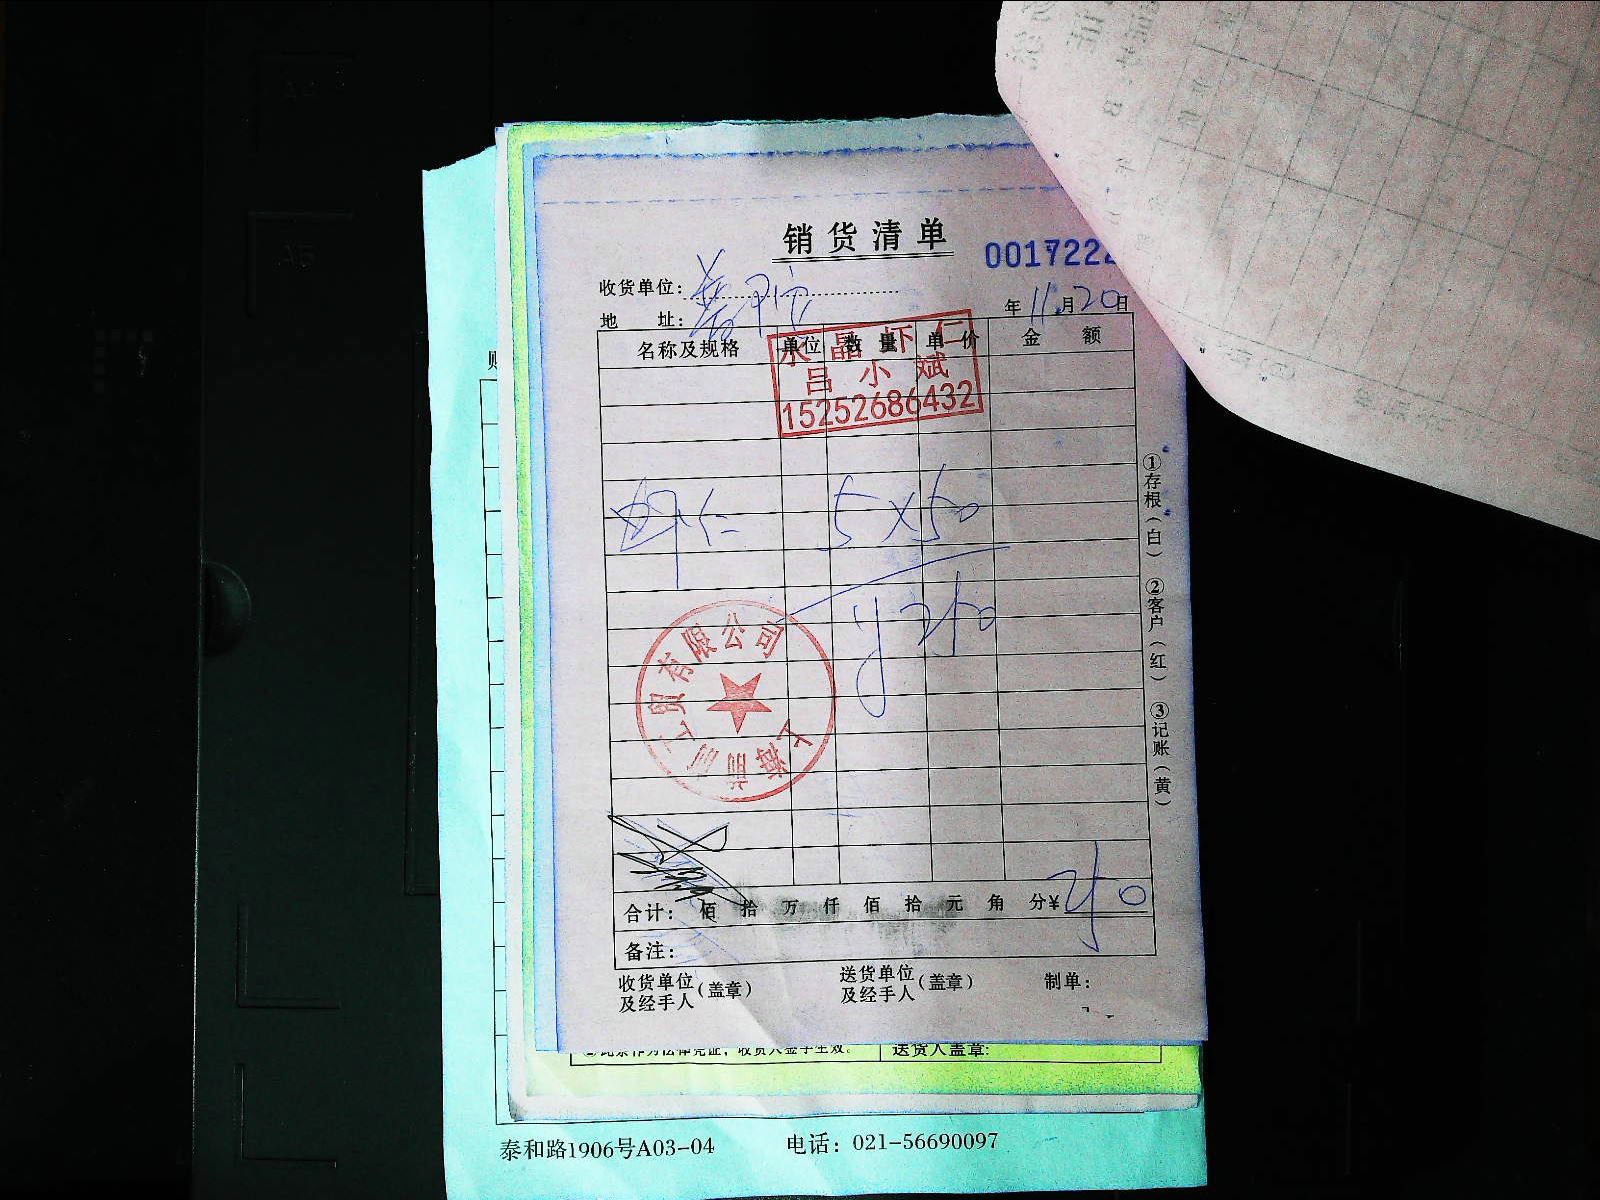 销货清单
001722
收货单位:
年 11 月 20 日
地 址:
名称及规格 单位 数量 单价 金额
水晶虾仁
吕小斌
15252686432
虾仁 5×50
¥250
上海
工贸有限公司
合计: 佰 拾 万 仟 佰 拾 元 角 分¥ 250
备注:
收货单位及经手人(盖章) 送货单位及经手人(盖章) 制单:
①存根(白) ②客户(红) ③记账(黄)
②此条作为法律凭证,收货人签字生效。 送货人盖章:
泰和路1906号A03-04 电话: 021-56690097